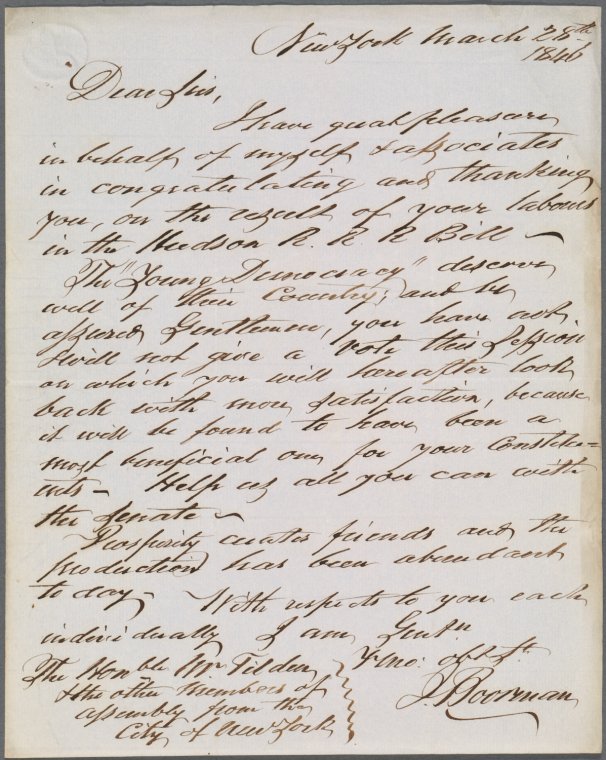 New York March 28th
1846
Dear Sirs,
I have great pleasure
in behalf of myself & associates
in congratulating and thanking
you, on the result of your labours
in the Hudson R. R. R Bill –
The "Young Democracy" deserve
well of their Country; and be
assured Gentlemen, you have not
& will not give a vote this Session
on which you will hereafter look
back with more satisfaction, because
it will be found to have been a
most beneficial one for your Constitu=
ents – Help us all you can with
the Senate –
Prosperity creates friends and the
production has been abundant
to day – With respects to you each
individually I am Gentn
Yr mo: obt St
J. Boorman
The Honble Mr Tilden
& the other Members of
Assembly from the
City of New York